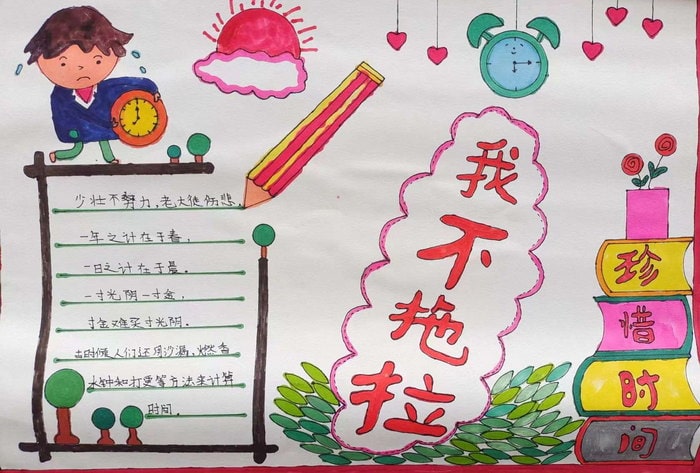 少壮不努力,老大徒伤悲。
一年之计在于春,
一日之计在于晨。
一寸光阴一寸金,
寸金难买寸光阴。
古时候人们还用沙漏,燃香
水钟和打更等方法来计算
时间。
我不拖拉
珍
惜
时
间